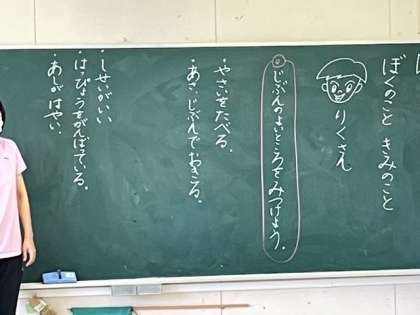 ぼくのこと きみのこと
りくさん
じぶんのよいところをみつけよう。
・やさいをたべる。
・あさ、じぶんでおきる。
・しせいがいい
・はっぴょうをがんばっている。
・あしがはやい。